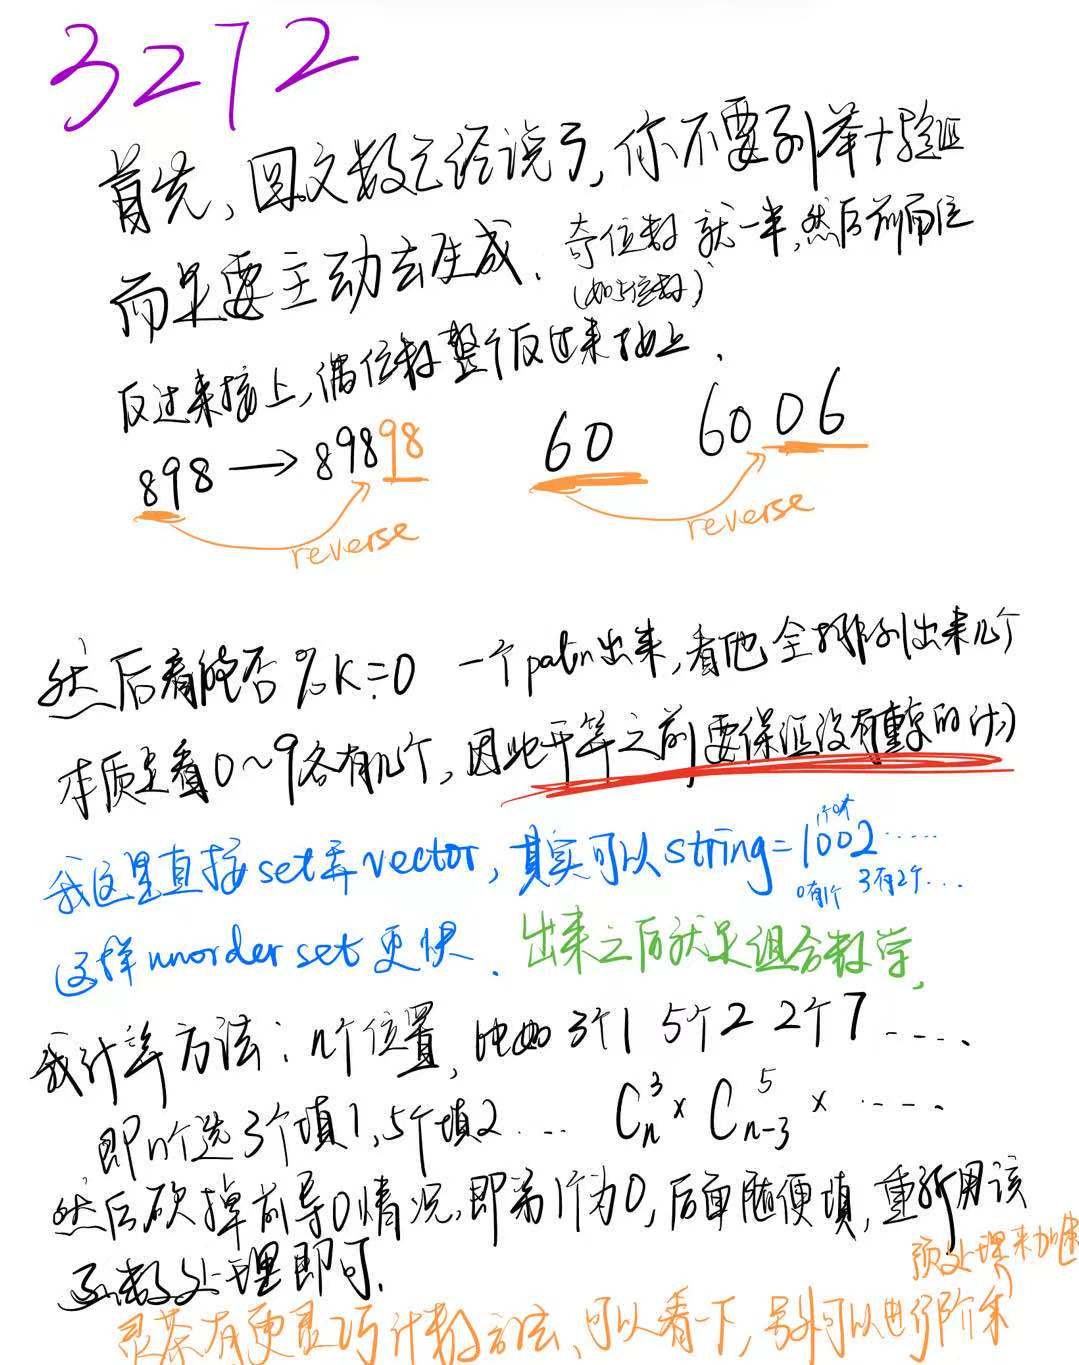 3272
首先,回文数已经说了,你不要列举+验证
而是要主动去生成. 奇位数 就一半,然后前两位
(如5位数)
反过来接上,偶位数整个反过来接上.
898 → 89898 60 6006
reverse reverse
然后看能否 % K = 0 一个palin出来,看他全排列出来几个
本质是看0~9各有几个,因此平等之前要保证没有重复的计
我这里直接set弄vector,其实可以string=1002......
1个0 0有1个 3有2个...
这样unorder set更快. 出来之后就是组合数学,
我计算方法: n个位置,比如3个1 5个2 2个7 ....
即n个选3个填1,5个填2 ... C_n^3 × C_{n-3}^5 × ....
然后砍掉前导0情况,即第1个为0,后面随便填,重新用该
函数处理即可. 预处理来加速
灵茶有更灵巧计数方法,可以看一下,另外可以进行阶乘